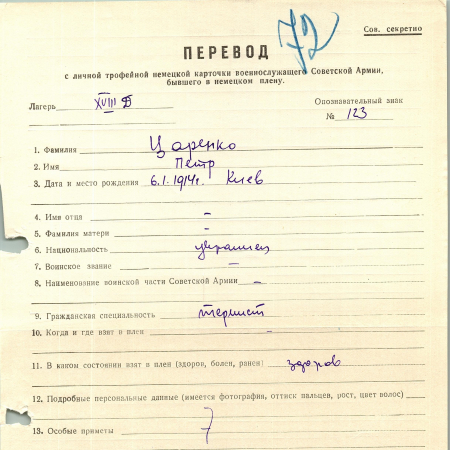 72
Сов. секретно
ПЕРЕВОД
с личной трофейной немецкой карточки военнослужащего Советской Армии,
бывшего в немецком плену.
Лагерь XVIII Д
Опознавательный знак
№ 123
1. Фамилия Царенко
2. Имя Петр
3. Дата и место рождения 6.1.1914г. Киев
4. Имя отца –
5. Фамилия матери –
6. Национальность украинец
7. Воинское звание –
8. Наименование воинской части Советской Армии –
9. Гражданская специальность
10. Когда и где взят в плен –
11. В каком состоянии взят в плен (здоров, болен, ранен) здоров
12. Подробные персональные данные (имеется фотография, оттиск пальцев, рост, цвет волос)
13. Особые приметы